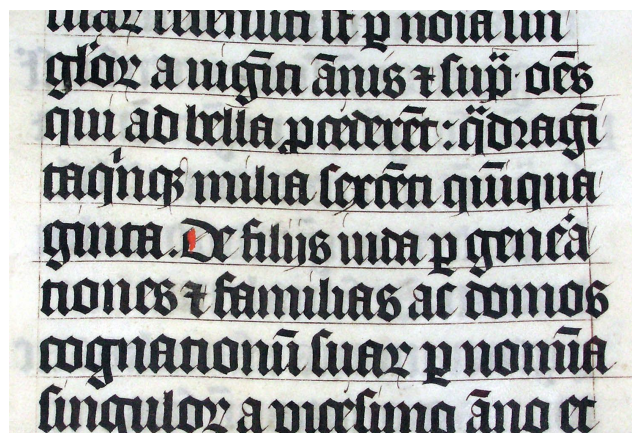 glōꝝ a uigīti ānis ⁊ sup̄ · oēs
qui ad bella ꝓcederēt : q̄dragī
taq̇nqꝫ milia sexcēti quīqua
ginta. De filijs iuda ꝑ geneᷓa
tiones ⁊ familias ac domos
cognationū suaꝝ ꝑ nomīa
singuloꝝ a vicesimo āno et